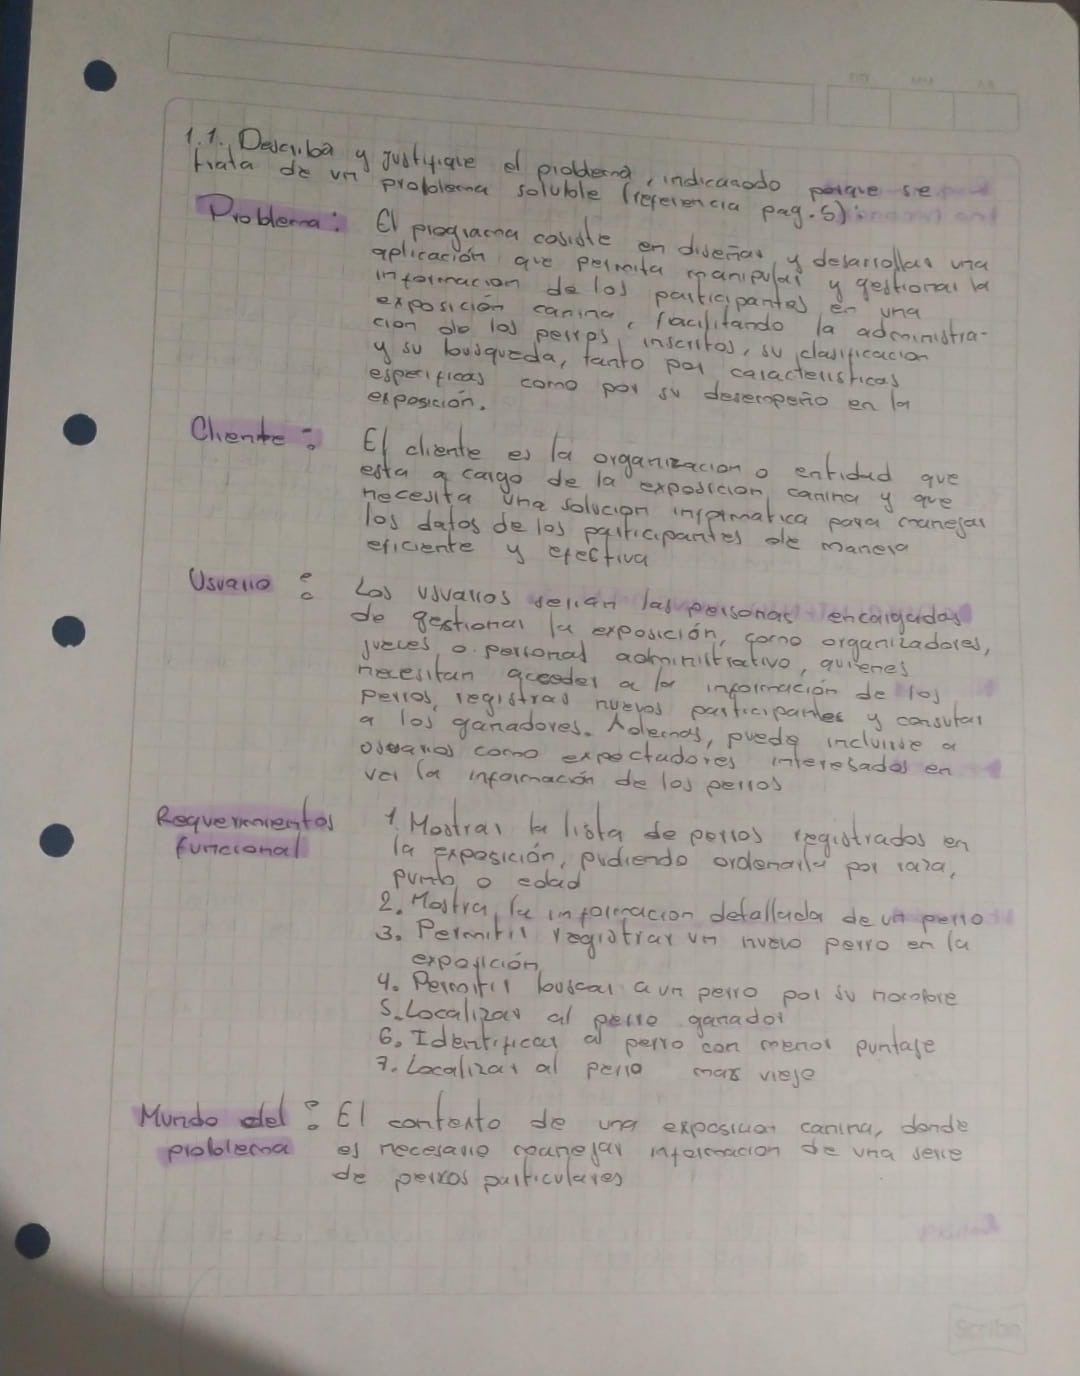 1.1. Describa y justifique el problema, indicando porque se
trata de un problema soluble (referencia pag. 5):
Problema: El programa cosiste en diseñar y desarrollar una
aplicación que permita manipular y gestionar la
informacion de los participantes en una
exposición canina, facilitando la administra-
cion de los perros inscritos, su clasificacion
y su busqueda, tanto por caracteristicas
especificas como por su desempeño en la
exposición.
Cliente: El cliente es la organizacion o entidad que
esta a cargo de la exposicion canina y que
necesita una solucion informatica para manejar
los datos de los participantes de manera
eficiente y efectiva
Usuario: Los usuarios serian las personas encargadas
de gestionar la exposición, como organizadores,
jueces o personal administrativo, quienes
necesitan acceder a la información de los
perros, registrar nuevos participantes y consutar
a los ganadores. Ademas, puede incluirse a
usuarios como expectadores interesados en
ver la información de los perros
Requerimientos
funcional
1. Mostrar la lista de perros registrados en
la exposición, pudiendo ordenarla por raza,
punto o edad
2. Mostra la informacion detallada de un perro
3. Permitir registrar un nuevo perro en la
exposición
4. Permitir buscar a un perro por su nombre
5. Localizar al perro ganador
6. Identificar al perro con menor puntaje
7. Localizar al perro mas viejo
Mundo del : El contexto de una exposicion canina, donde
problema es necesario manejar informacion de una serie
de perros particulares
Scribe